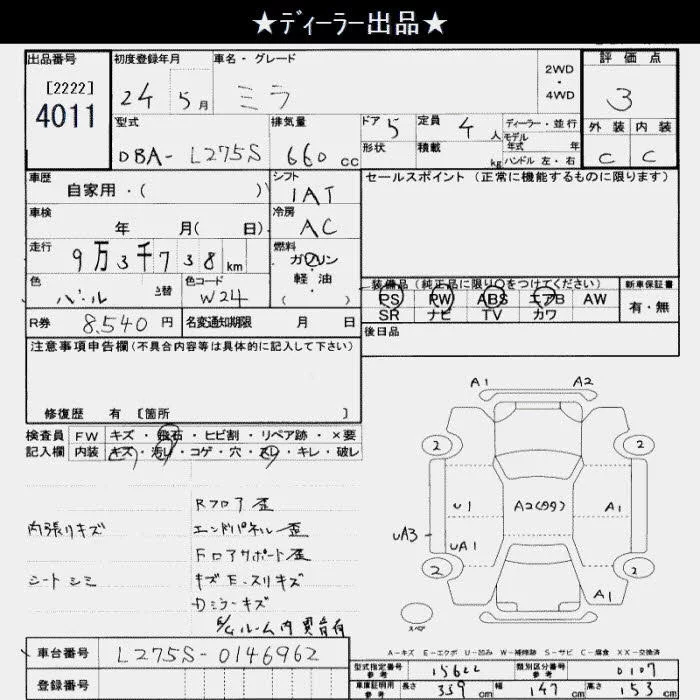 ★ディーラー出品★
出品番号 初度登録年月 車名・グレード 2WD ・ 4WD 評価点
[2222]
4011
24 5月 ミラ 3
型式 排気量 ドア 5 定員 4人 ディーラー・並行 外装 内装
モデル年式 年
DBA- L275S 660 cc 形状 積載 kg ハンドル 左・右 C C
車歴 シフト セールスポイント (正常に機能するものに限ります)
自家用・( ) IAT
車検 冷房
年 月( 日) AC
走行 燃料
9万3千738km ガソリン・軽油
( )
色 色コード 装備品 (純正品に限り○をつけてください) 新車保証書
パール 3替 W24 PS PW ABS エアB AW 有・無
SR ナビ TV カワ
R券 8,540円 名変通知期限 月 日 後日品
注意事項申告欄(不具合内容等は具体的に記入して下さい)
修復歴 有 [箇所 ]
検査員 FW キズ・飛石・ヒビ割・リペア跡・×要
記入欄 内装 キズ・汚レ・コゲ・穴・スレ・キレ・破レ
A1 A2
2 2
U1 A2(99) A1
UA3 UA1
2 2
A1
スペア
Rフロア歪
内張りキズ エンドパネル歪
Fロアサポート歪
シートシミ キズE・スリキズ
Dミラーキズ
ルーム内
A-キズ E-エクボ U-凹み W-補修跡 S-サビ C-腐食 XX-交換済
車台番号 L275S-0146962
型式指定番号 参考 15622 類別区分番号 参考 0107
登録番号
車庫証明用 参考 長さ 339cm 幅 147cm 高さ 153cm